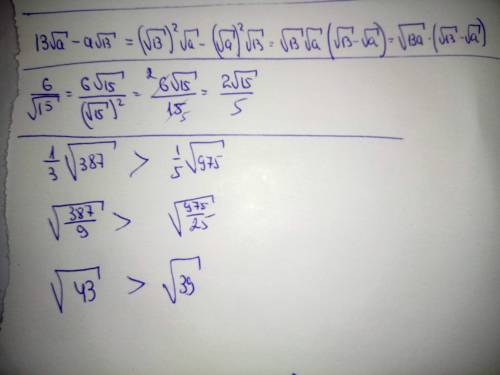 13√a - a√13 = (√13)²√a - (√a)²√13 = √13√a(√13 - √a) = √13a·(√13 - √a)
6/√15 = 6√15/(√15)² = ²6√15/15₅ = 2√15/5
1/3√387 > 1/5√975
√387/9 > √975/25
√43 > √39